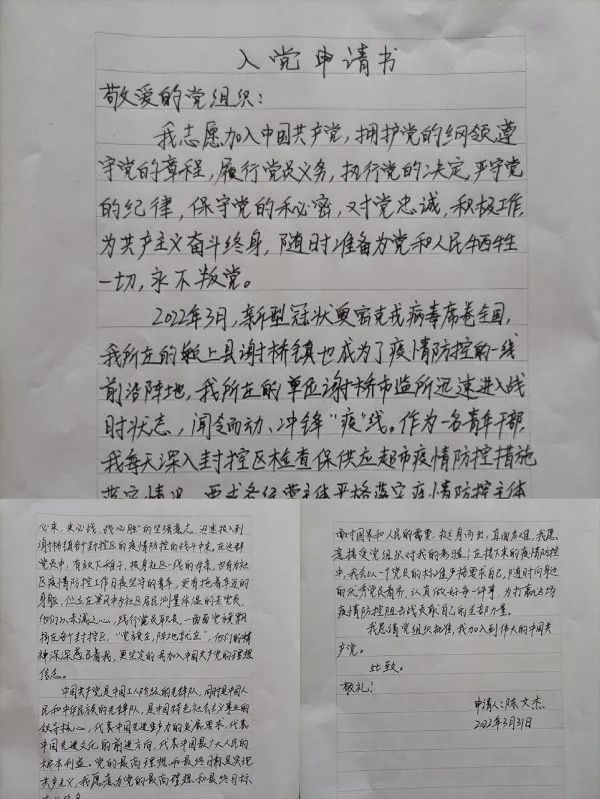 入党申请书
敬爱的党组织：
我志愿加入中国共产党，拥护党的纲领遵
守党的章程，履行党员义务，执行党的决定，严守党
的纪律，保守党的秘密，对党忠诚，积极工作，
为共产主义奋斗终身，随时准备为党和人民牺牲
一切，永不叛党。
2022年3月，新型冠状奥密克戎病毒席卷全国，
我所在的颍上县谢桥镇也成为了疫情防控的一线
前沿阵地，我所在的单位谢桥市监所迅速进入战
时状态，闻令而动、冲锋“疫”线。作为一名青年干部，
我每天深入封控区检查保供应超市疫情防控措施
落实情况，要求各经营主体严格落实疫情防控主体
必来，来必战，战必胜”的坚强意志，迅速投入到
谢桥镇各个封控区的疫情防控的战斗中来，在这群
党员中，有放下孩子，投身社区一线的母亲，也有为社
区疫情防控工作日夜坚守的青年，更有拖着年迈的
身躯，伫立在寒风中为社区居民测量体温的老党员，
他们以赤诚之心，践行党员职责，一面面党旗飘
扬在每个封控区，“党旗在，阵地就在”，他们的精
神深深感召着我，更坚定的我加入中国共产党的理想
信念。
中国共产党是中国工人阶级的先锋队，同时是中国人
民和中华民族的先锋队，是中国特色社会主义事业的
领导核心，代表中国先进生产力的发展要求，代表
中国先进文化的前进方向，代表中国最广大人民的
根本利益。党的最高理想和最终目标是实现
共产主义，我愿意为党的最高理想和最终目标
面对国家和人民的需要，挺身而出，直面艰难，我愿
意接受党组织对我的考验！在接下来的疫情防控
中，我会以一个党员的标准严格要求自己，随时向身边
的优秀党员看齐，认真做好每一件事，为打赢这场
疫情防控阻击战贡献自己的全部力量。
我恳请党组织批准，我加入到伟大的中国共
产党。
此致。
敬礼！
申请人：陈文杰
2022年3月31日